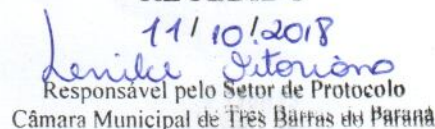 11/10/2018
Responsável pelo Setor de Protocolo
Câmara Municipal de Três Barras do Paraná